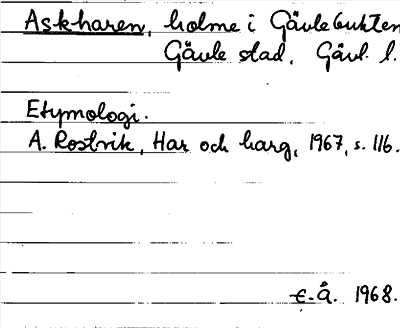 Askharen, holme i Gävlebukten
Gävle stad, Gävl. l.
Etymologi.
A. Rostvik, Har och harg, 1967, s. 116.
E. Å. 1968.